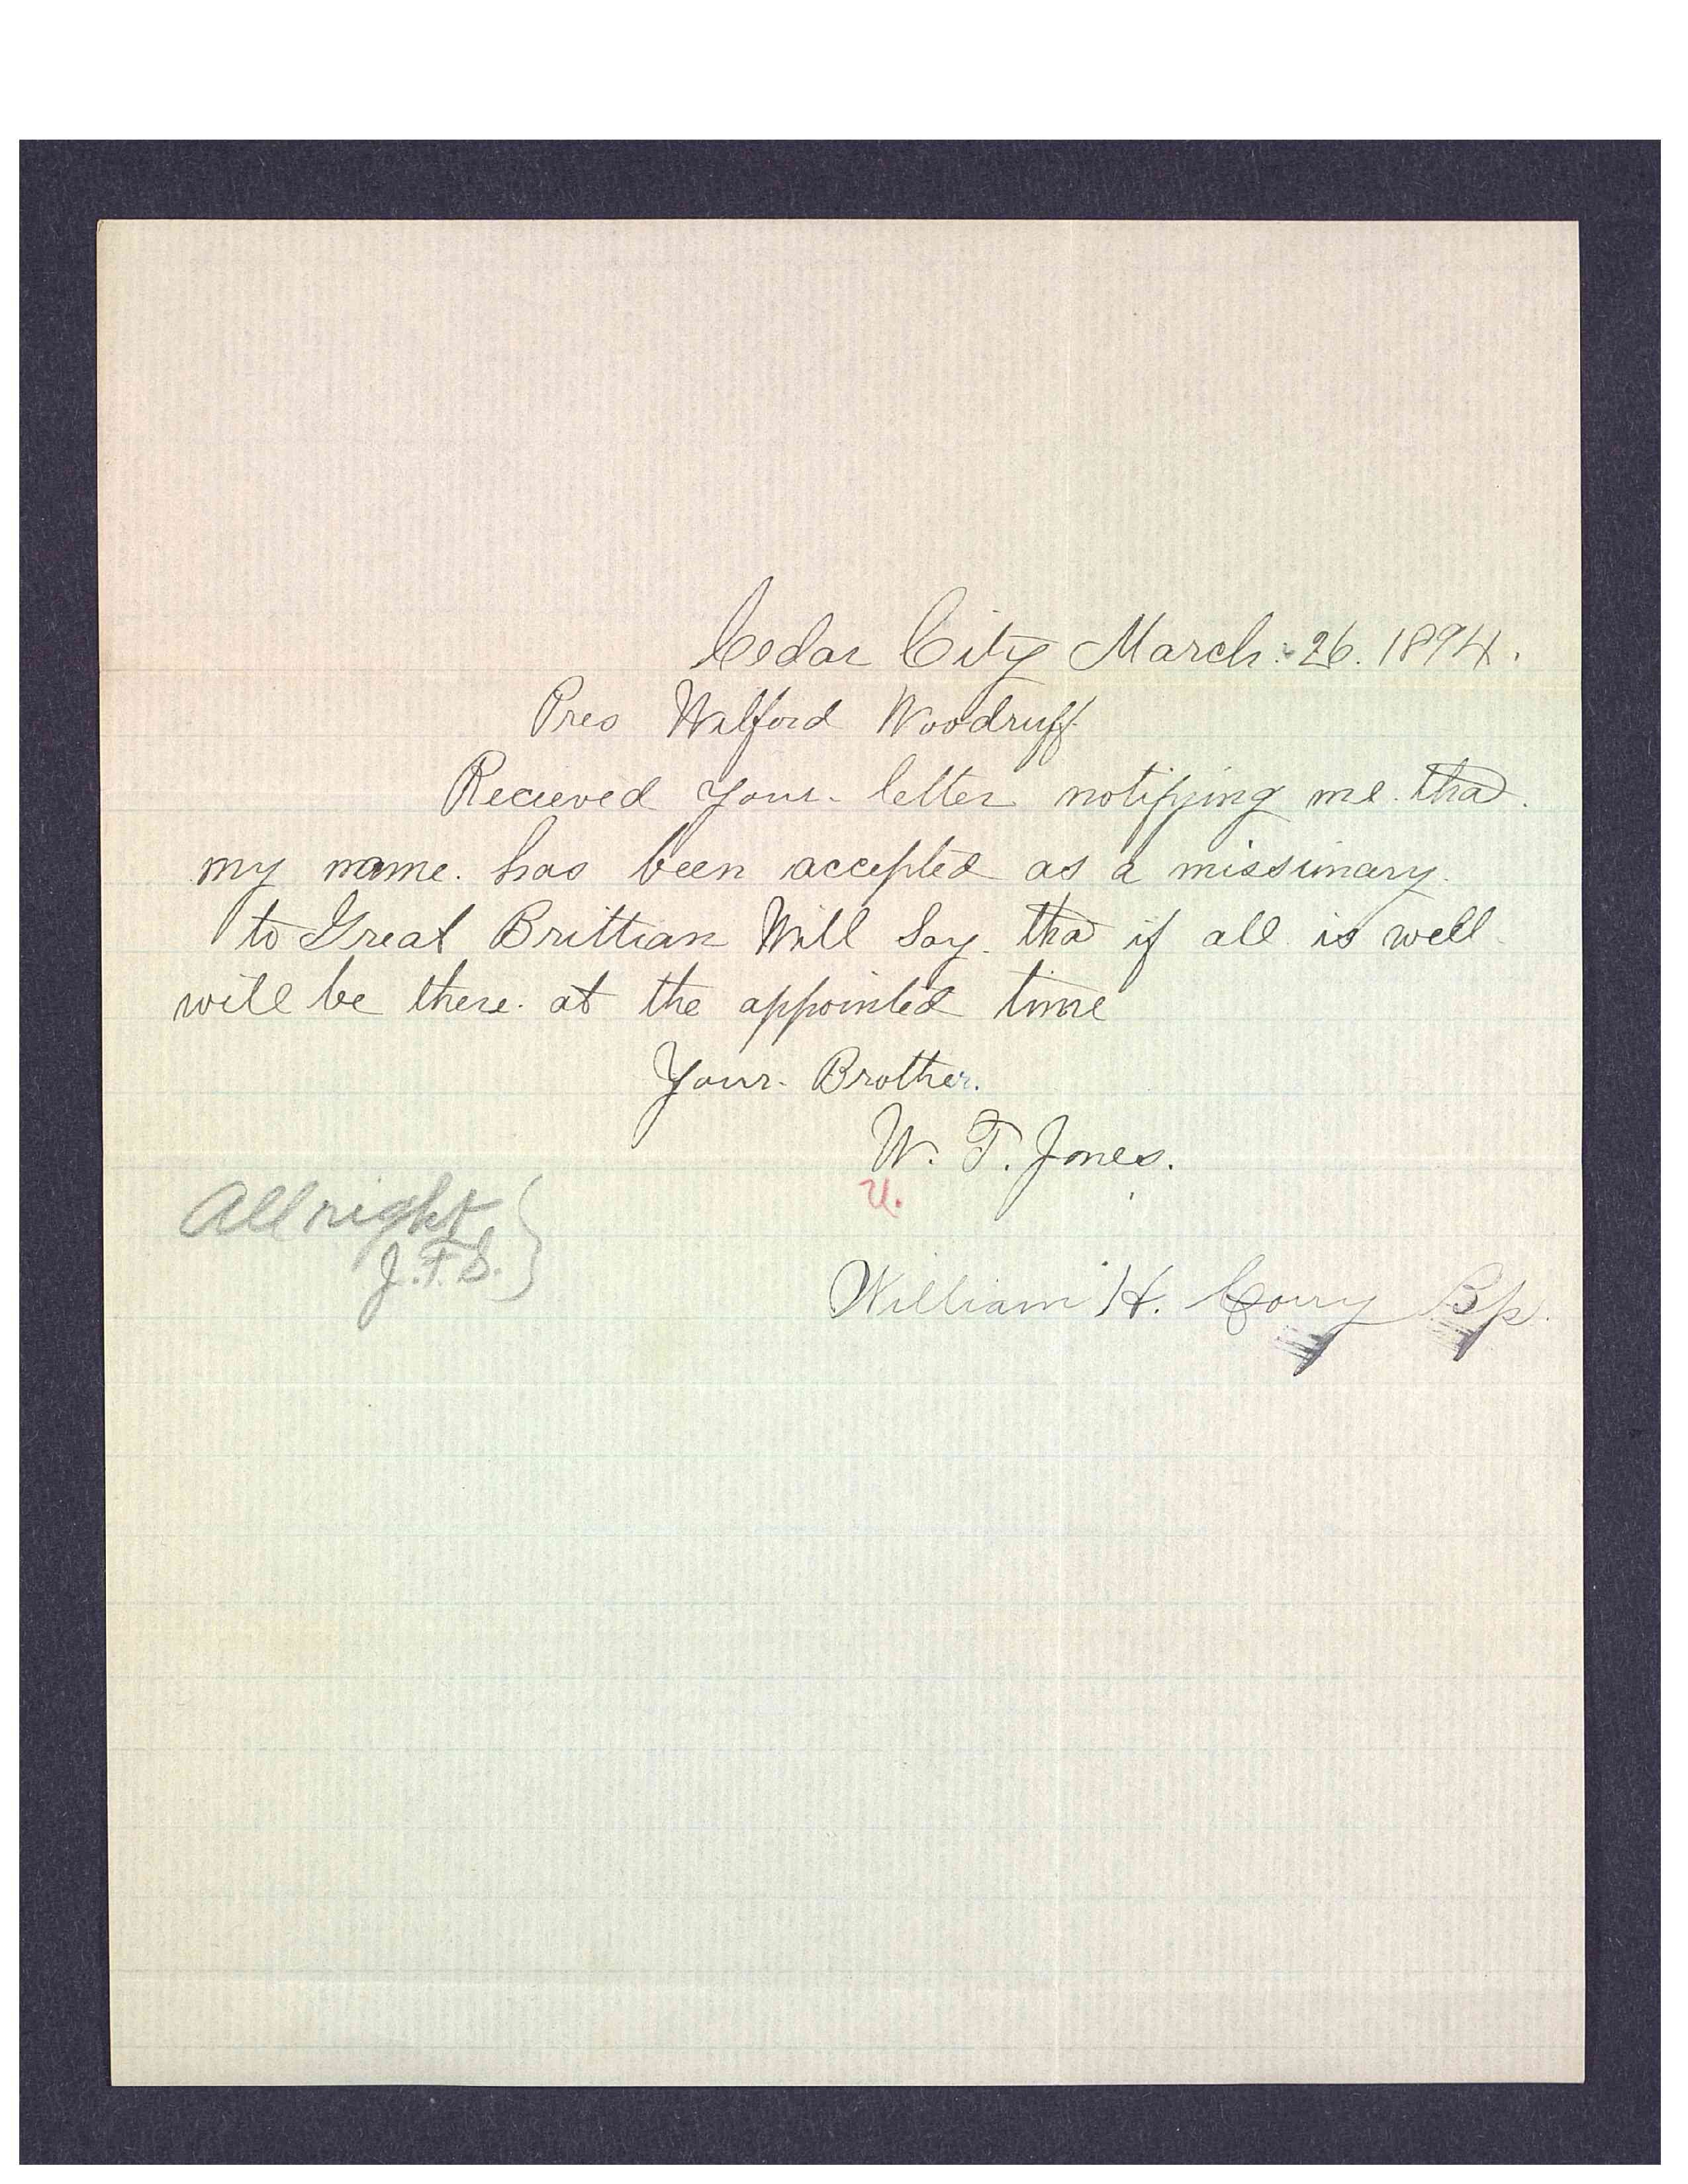 Cedar City March. 26. 1894.
Pres Wilford Woodruff
Recieved your letter notifying me that
my name. has been accepted as a missinary.
to Great Brittian Will Say that if all is well
will be there. at the appointed time
Your Brother.
W. T. Jones.
U.
All right
J.F.S.
William H. Corry Bp.